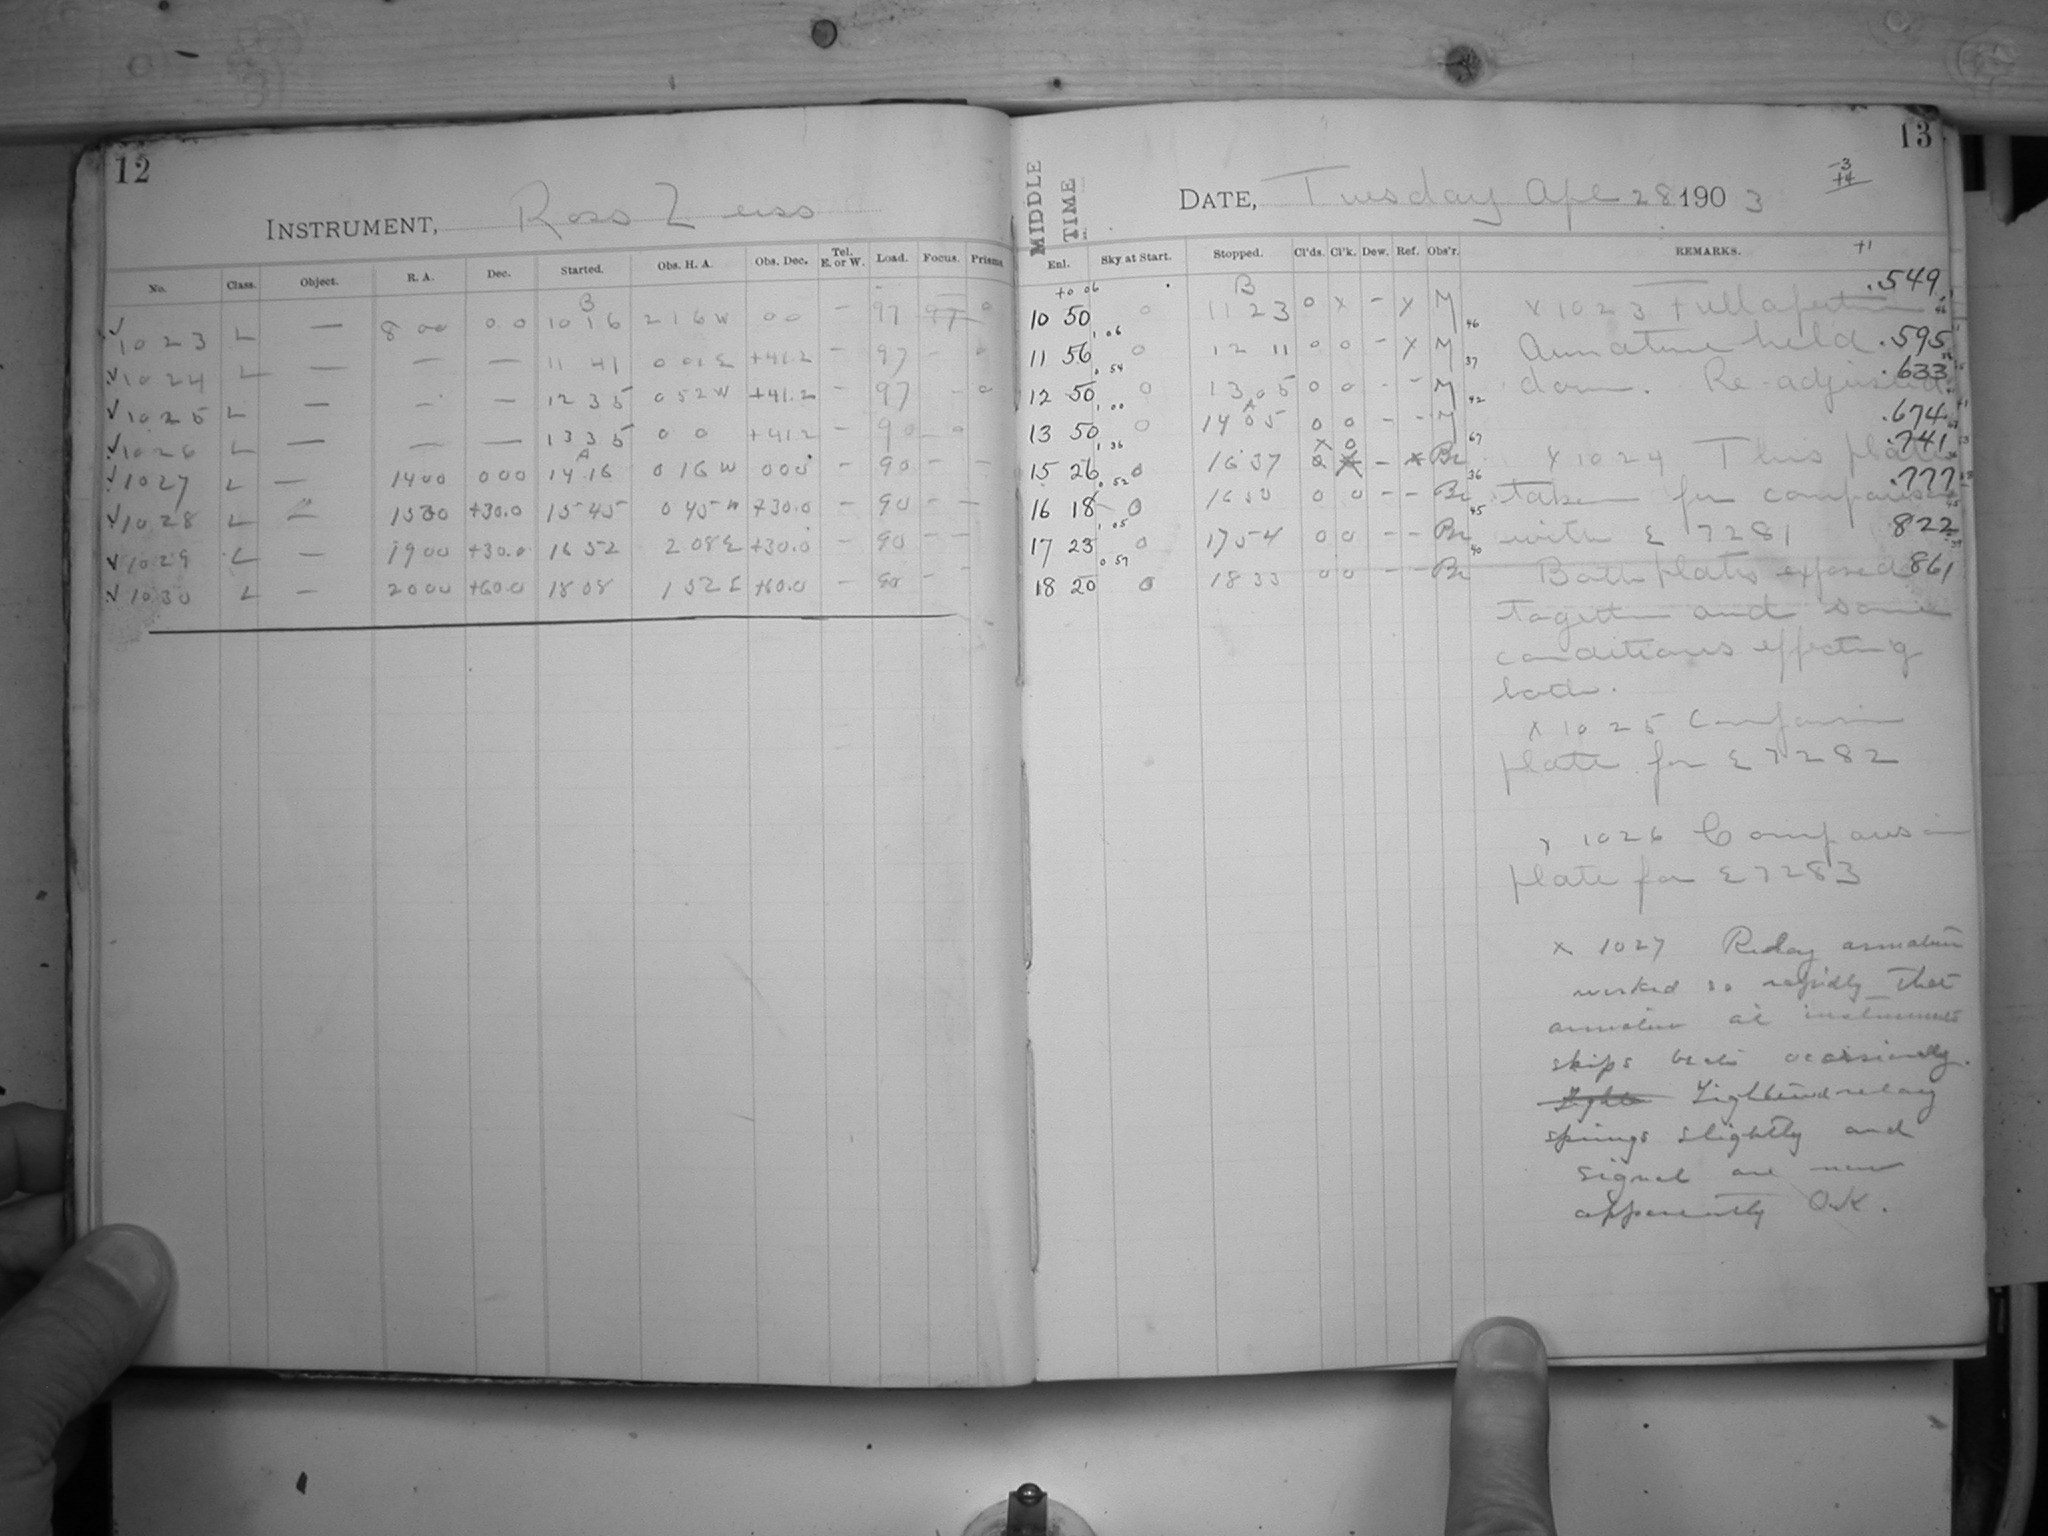 12
INSTRUMENT, Ross Zeiss
No. Class. Object. R. A. Dec. Started. Obs. H. A. Obs. Dec. Tel. E. or W. Load. Focus. Prisms
B
√ 1023 L — 8 00 00 10 16 2 16 W 00 – 97 97 0
√ 1024 L — — — 11 41 0 01 E +41.2 – 97 – 0
√ 1025 L — — — 12 35 0 52 W +41.2 – 97 – 0
√ 1026 L — — — 13 35 0 0 +41.2 – 90 – 0
A
√ 1027 L — 14 00 000 14 16 0 16 W 000 – 90 – –
√ 1028 L — 15 30 +30.0 15 45 0 45 W +30.0 – 90 – –
√ 1029 L — 19 00 +30.0 16 52 2 08 E +30.0 – 90 – –
√ 1030 L — 20 00 +60.0 18 08 1 52 E +60.0 – 90 – –
13
-3
+4
MIDDLE TIME
DATE, Tuesday Apl 28 1903
Enl. Sky at Start. Stopped. Cl'ds. Cl'k. Dew. Ref. Obs'r. REMARKS. +1
+0 06
B
10 50 0 11 23 0 x – x M 46
1 06
11 56 0 12 11 0 0 – x M 37
0 54
12 50 0 13 05 0 0 – – M 42
1 00
A
13 50 0 14 05 0 0 – – M 67
1 36
x 0
15 26 0 16 37 – x Br 36
0 52
16 18 0 16 50 0 0 – – Br 45
1 05
17 23 0 17 54 0 0 – – Br 40
0 57
18 20 0 18 33 0 0 – – Br
.549
.595
.633
.674
.741
.777
822
861
x 1023 Full aperture
Armature held
down. Re-adjusted
x 1024 This plate
taken for comparison
with E 7281
Both plates exposed
together and same
conditions effecting
both.
x 1025 Comparison
plate for E 7282
x 1026 Comparison
plate for E 7283
x 1027 Relay armature
worked so rapidly that
armature at instrument
skips beats occasionally.
Tightened relay
springs slightly and
signal are now
apparently O.K.